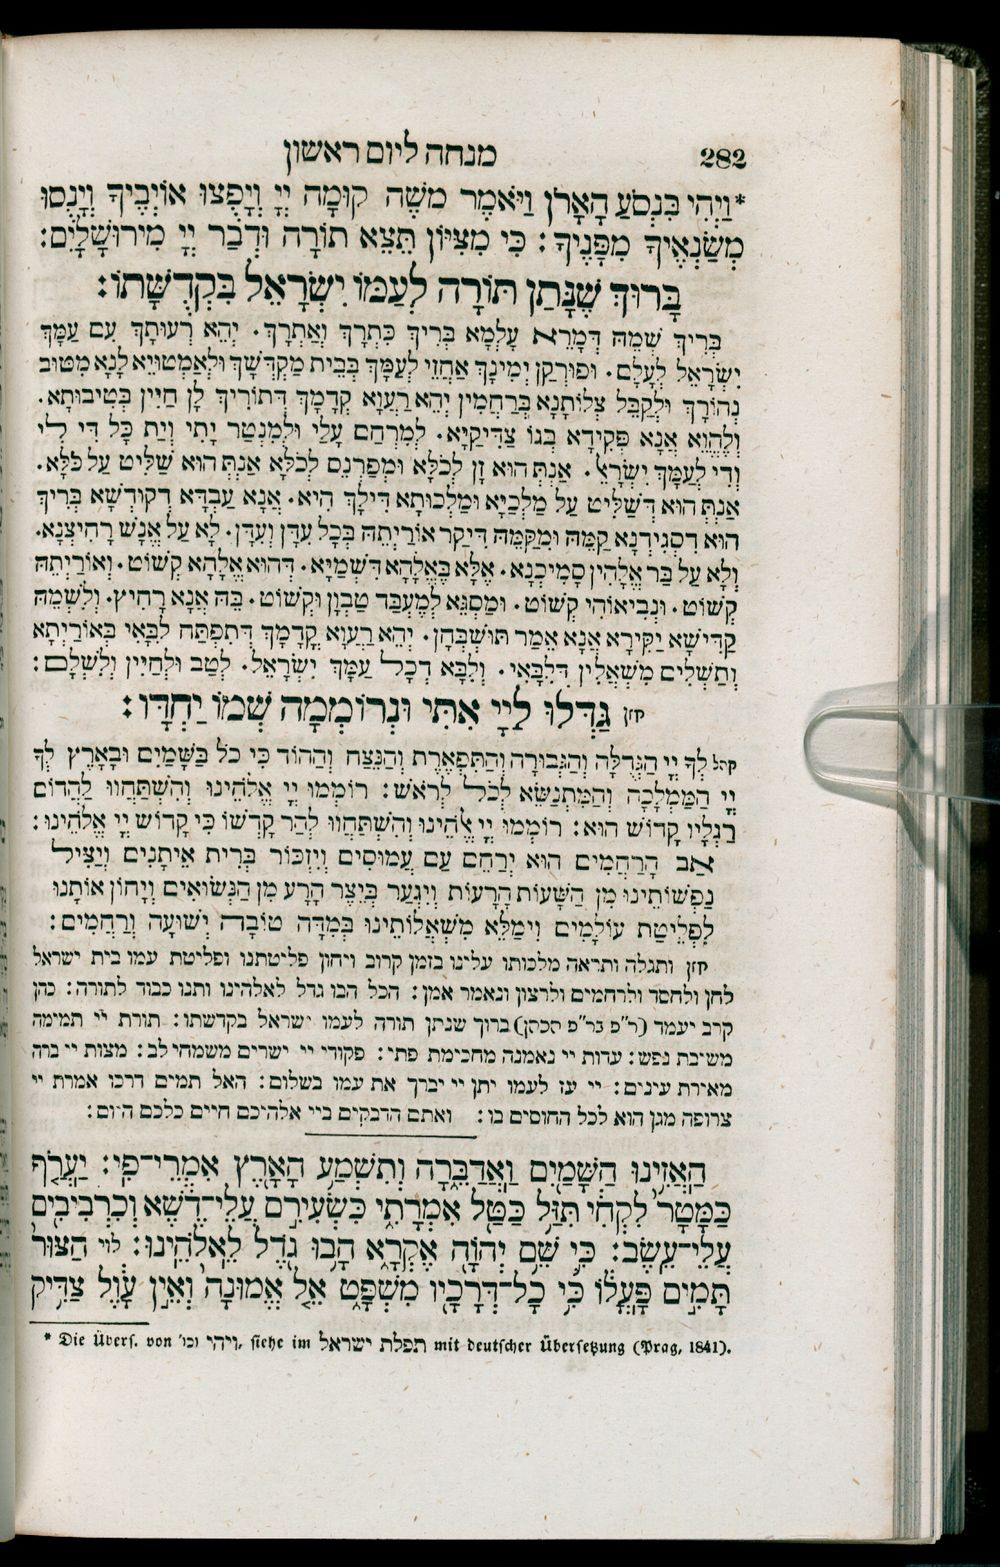 282 מנחה ליום ראשון
*וַיְהִי בִּנְסֹעַ הָאָרֹן וַיֹּאמֶר מֹשֶׁה קוּמָה יְיָ וְיָפֻצוּ אוֹיְבֶיךָ וְיָנֻסוּ
מְשַׂנְאֶיךָ מִפָּנֶיךָ: כִּי מִצִּיּוֹן תֵּצֵא תוֹרָה וּדְבַר יְיָ מִירוּשָׁלָיִם:
בָּרוּךְ שֶׁנָּתַן תּוֹרָה לְעַמּוֹ יִשְׂרָאֵל בִּקְדֻשָּׁתוֹ:
בְּרִיךְ שְׁמֵהּ דְּמָרֵא עָלְמָא בְּרִיךְ כִּתְרָךְ וְאַתְרָךְ. יְהֵא רְעוּתָךְ עִם עַמָּךְ
יִשְׂרָאֵל לְעָלַם. וּפוּרְקַן יְמִינָךְ אַחֲזֵי לְעַמָּךְ בְּבֵית מַקְדְּשָׁךְ וּלְאַמְטוּיֵא לָנָא מִטּוּב
נְהוֹרָךְ וּלְקַבֵּל צְלוֹתָנָא בְּרַחֲמִין יְהֵא רַעֲוָא קֳדָמָךְ דְּתוֹרִיךְ לָן חַיִּין בְּטִיבוּתָא.
וְלֶהֱוֵא אֲנָא פְקִידָא בְּגוֹ צַדִּיקַיָּא. לְמִרְחַם עָלַי וּלְמִנְטַר יָתִי וְיַת כָּל דִּי לִי
וְדִי לְעַמָּךְ יִשְׂרָאֵל. אַנְתְּ הוּא זָן לְכֹלָּא וּמְפַרְנֵם לְכֹלָּא אַנְתְּ הוּא שַׁלִּיט עַל כֹּלָּא.
אַנְתְּ הוּא דְּשַׁלִּיט עַל מַלְכַיָּא וּמַלְכוּתָא דִּילָךְ הִיא. אֲנָא עַבְדָּא דְקוּדְשָׁא בְּרִיךְ
הוּא דְסָגִידְנָא קַמֵּהּ וּמִקַּמֵּהּ דִּיקַר אוֹרַיְתֵהּ בְּכָל עִדָּן וְעִדָּן. לָא עַל אֱנָשׁ רָחִיצְנָא.
וְלָא עַל בַּר אֱלָהִין סָמִיכְנָא. אֶלָּא בֶּאֱלָהָא דִּשְׁמַיָּא. דְּהוּא אֱלָהָא קְשׁוֹט. וְאוֹרַיְתֵהּ
קְשׁוֹט. וּנְבִיאוֹהִי קְשׁוֹט. וּמַסְגֵּא לְמֶעְבַּד טַבְוָן וּקְשׁוֹט. בֵּהּ אֲנָא רָחִיץ. וְלִשְׁמֵהּ
קַדִּישָׁא יַקִּירָא אֲנָא אֵמַר תֻּשְׁבְּחָן. יְהֵא רַעֲוָא קֳדָמָךְ דְּתִפְתַּח לִבָּאִי בְּאוֹרַיְתָא
וְתַשְׁלִים מִשְׁאֲלִין דְּלִבָּאִי. וְלִבָּא דְכָל עַמָּךְ יִשְׂרָאֵל. לְטַב וּלְחַיִּין וְלִשְׁלָם:
חזן גַּדְּלוּ לַיְיָ אִתִּי וּנְרוֹמְמָה שְׁמוֹ יַחְדָּו:
קהל לְךָ יְיָ הַגְּדֻלָּה וְהַגְּבוּרָה וְהַתִּפְאֶרֶת וְהַנֵּצַח וְהַהוֹד כִּי כֹל בַּשָּׁמַיִם וּבָאָרֶץ לְךָ
יְיָ הַמַּמְלָכָה וְהַמִּתְנַשֵּׂא לְכֹל לְרֹאשׁ: רוֹמְמוּ יְיָ אֱלֹהֵינוּ וְהִשְׁתַּחֲווּ לַהֲדוֹם
רַגְלָיו קָדוֹשׁ הוּא: רוֹמְמוּ יְיָ אֱלֹהֵינוּ וְהִשְׁתַּחֲווּ לְהַר קָדְשׁוֹ כִּי קָדוֹשׁ יְיָ אֱלֹהֵינוּ:
אַב הָרַחֲמִים הוּא יְרַחֵם עַם עֲמוּסִים וְיִזְכּוֹר בְּרִית אֵיתָנִים וְיַצִּיל
נַפְשׁוֹתֵינוּ מִן הַשָּׁעוֹת הָרָעוֹת וְיִגְעַר בְּיֵצֶר הָרָע מִן הַנְּשׂוּאִים וְיָחוֹן אוֹתָנוּ
לִפְלֵיטַת עוֹלָמִים וִימַלֵּא מִשְׁאֲלוֹתֵינוּ בְּמִדָּה טוֹבָה יְשׁוּעָה וְרַחֲמִים:
חזן ותגלה ותראה מלכותו עלינו בזמן קרוב ויחון פליטתנו ופליטת עמו בית ישראל
לחן ולחסד ולרחמים ולרצון ונאמר אמן: הכל הבו גדל לאלהינו ותנו כבוד לתורה: כהן
קרב יעמד (ר"פ בר"פ הכהן) ברוך שנתן תורה לעמו ישראל בקדשתו: תורת יי תמימה
משיבת נפש: עדות יי נאמנה מחכימת פתי: פקודי יי ישרים משמחי לב: מצות יי ברה
מאירת עינים: יי עז לעמו יתן יי יברך את עמו בשלום: האל תמים דרכו אמרת יי
צרופה מגן הוא לכל החוסים בו: ואתם הדבקים ביי אלהיכם חיים כלכם היום:
הַאֲזִינוּ הַשָּׁמַיִם וַאֲדַבֵּרָה וְתִשְׁמַע הָאָרֶץ אִמְרֵי־פִי: יַעֲרֹף
כַּמָּטָר לִקְחִי תִּזַּל כַּטַּל אִמְרָתִי כִּשְׂעִירִם עֲלֵי־דֶשֶׁא וְכִרְבִיבִים
עֲלֵי־עֵשֶׂב: כִּי שֵׁם יְהוָֹה אֶקְרָא הָבוּ גֹדֶל לֵאלֹהֵינוּ: לוי הַצּוּר
תָּמִים פָּעֳלוֹ כִּי כָל־דְּרָכָיו מִשְׁפָּט אֵל אֱמוּנָה וְאֵין עָוֶל צַדִּיק
* Die Übers. von ויהי וכו', siehe im תפלת ישראל mit deutscher Übersetzung (Prag, 1841).